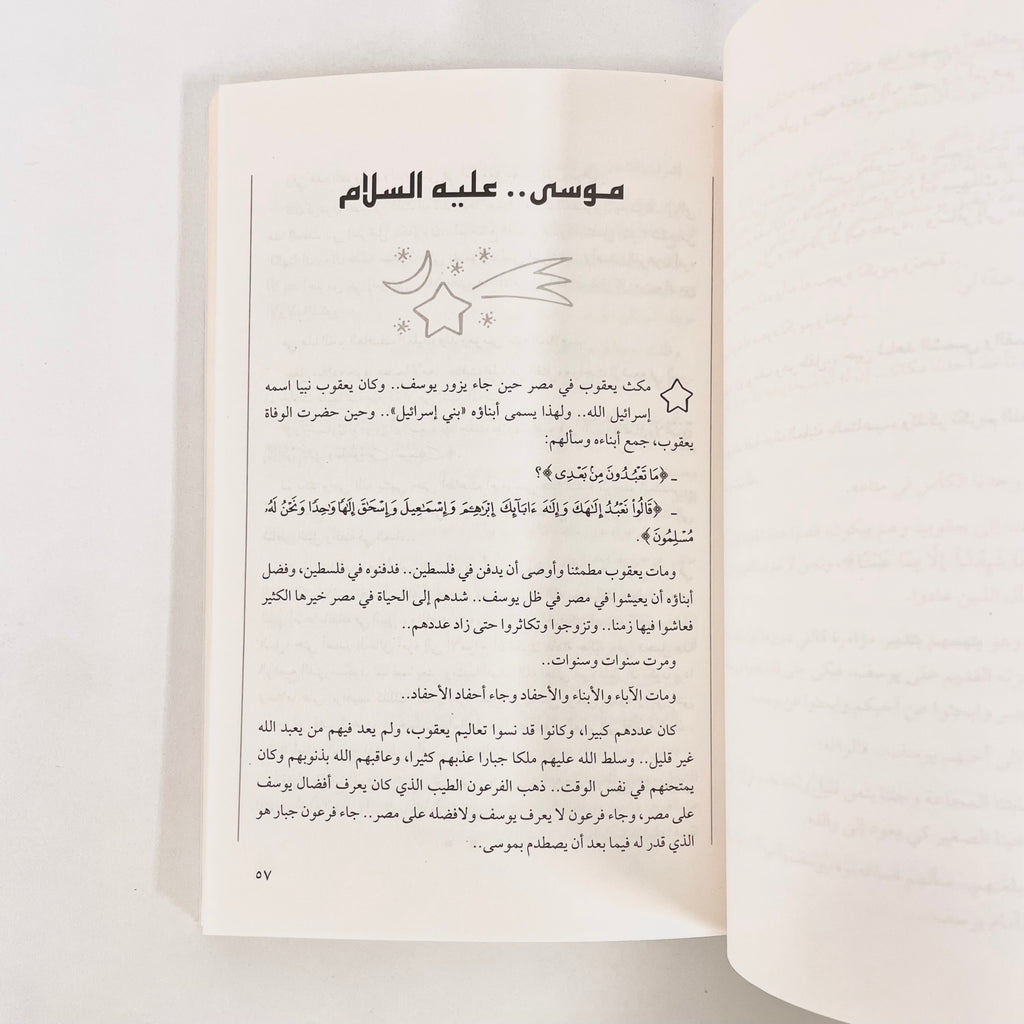 موسى.. عليه السلام
مكث يعقوب في مصر حين جاء يزور يوسف.. وكان يعقوب نبيا اسمه
إسرائيل الله.. ولهذا يسمى أبناؤه «بني إسرائيل».. وحين حضرت الوفاة
يعقوب، جمع أبناءه وسألهم:
ـ ﴿مَا تَعْبُدُونَ مِنۢ بَعْدِى﴾؟
ـ ﴿قَالُوا۟ نَعْبُدُ إِلَٰهَكَ وَإِلَٰهَ ءَابَآئِكَ إِبْرَٰهِـۧمَ وَإِسْمَٰعِيلَ وَإِسْحَٰقَ إِلَٰهًا وَٰحِدًا وَنَحْنُ لَهُۥ
مُسْلِمُونَ﴾.
ومات يعقوب مطمئنا وأوصى أن يدفن في فلسطين.. فدفنوه في فلسطين، وفضل
أبناؤه أن يعيشوا في مصر في ظل يوسف.. شدهم إلى الحياة في مصر خيرها الكثير
فعاشوا فيها زمنا.. وتزوجوا وتكاثروا حتى زاد عددهم..
ومرت سنوات وسنوات..
ومات الآباء والأبناء والأحفاد وجاء أحفاد الأحفاد..
كان عددهم كبيرا، وكانوا قد نسوا تعاليم يعقوب، ولم يعد فيهم من يعبد الله
غير قليل.. وسلط الله عليهم ملكا جبارا عذبهم كثيرا، وعاقبهم الله بذنوبهم وكان
يمتحنهم في نفس الوقت.. ذهب الفرعون الطيب الذي كان يعرف أفضال يوسف
على مصر، وجاء فرعون لا يعرف يوسف ولافضله على مصر.. جاء فرعون جبار هو
الذي قدر له فيما بعد أن يصطدم بموسى..
٥٧